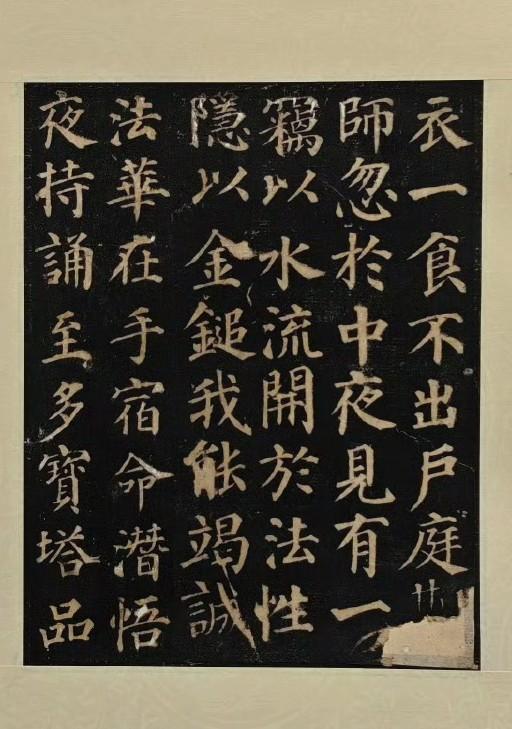 衣一食不出戶庭
師忽於中夜見有一
竊以水流開於法性
隱以金鎚我能竭誠
法華在手宿命潛悟
夜持誦至多寶塔品